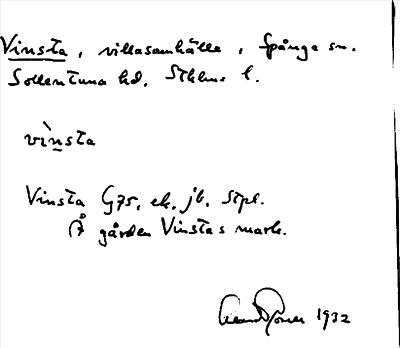 Vinsta, villasamhälle, Spånga sn.
Sollentuna hd, Sthlms l.
vìnsta
Vinsta G75, ek, jb, Stpl.
På gården Vinstas mark.
1932